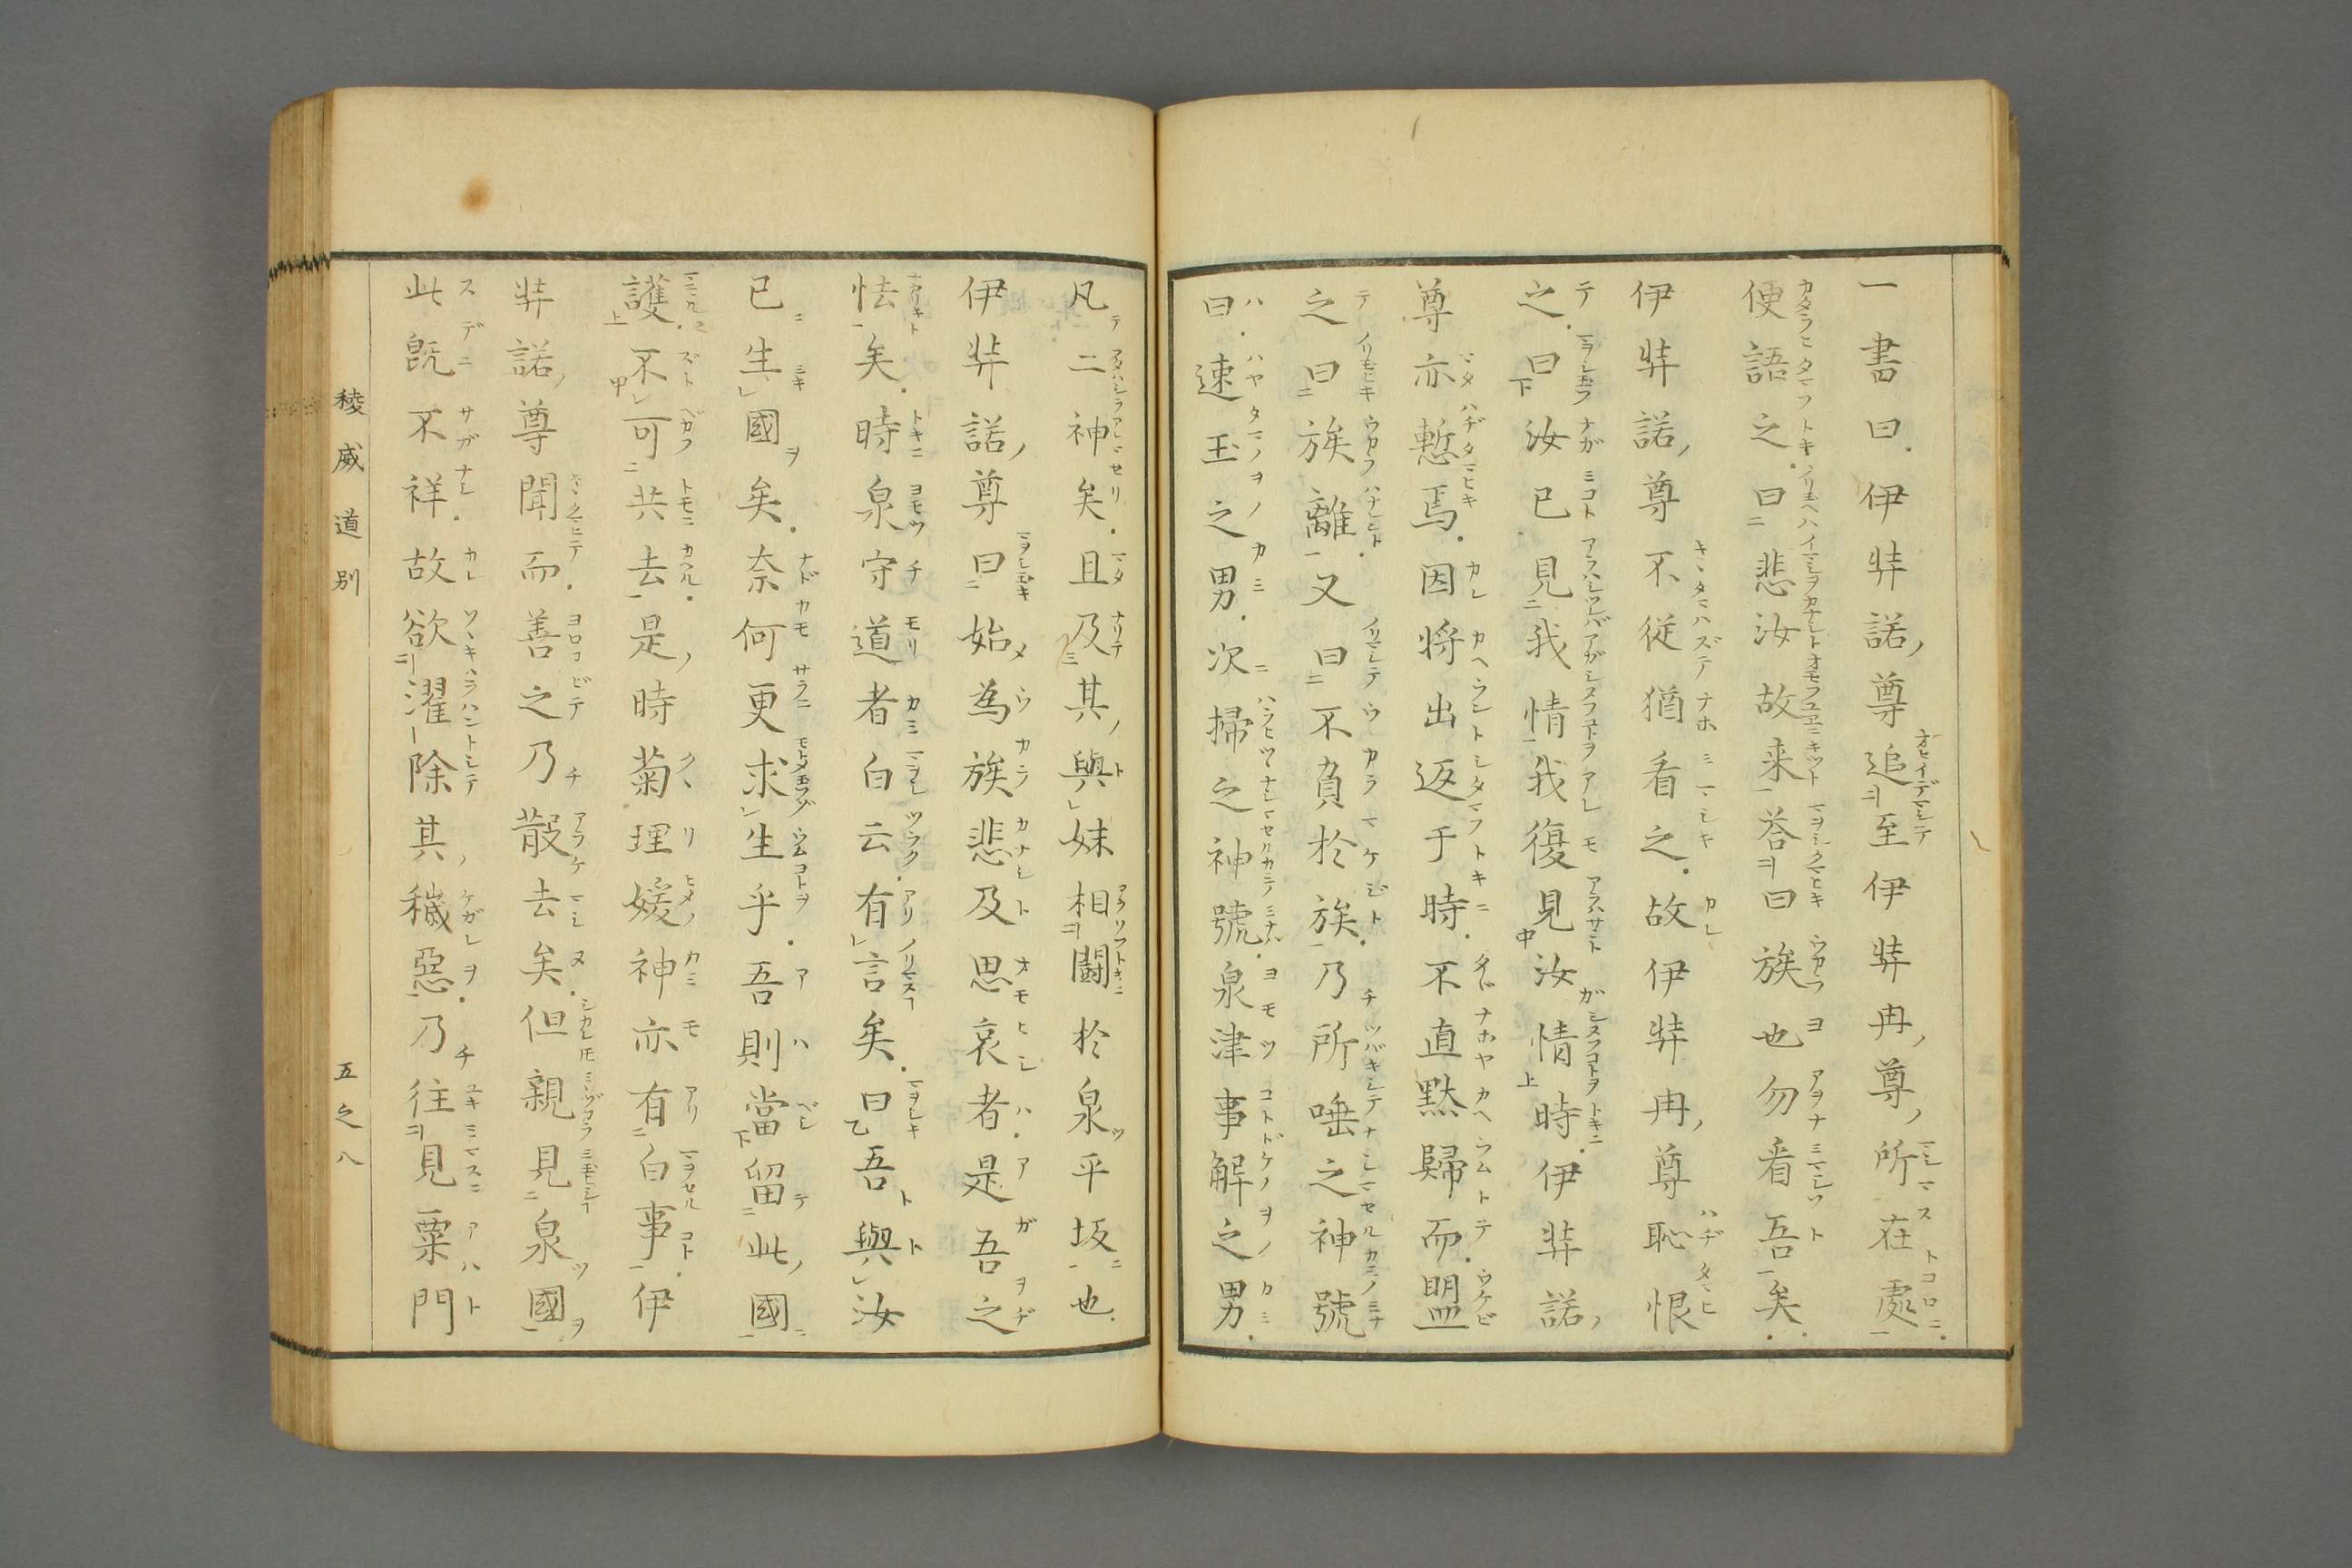 一書曰伊弉諾尊追至伊弉冉尊所在處
便語之曰悲汝故来答曰族也勿看吾矣
伊弉諾尊不従猶看之故伊弉冉尊恥恨
之曰汝已見我情我復見汝情時伊弉諾
尊亦慙焉因将出返于時不直黙歸而盟
之曰族離又曰不負於族乃所唾之神號
曰速玉之男次掃之神號泉津事解之男
凡二神矣且及其與妹相闘於泉平坂也
伊弉諾尊曰始為族悲及思哀者是吾之
怯矣時泉守道者白云有言矣曰吾與汝
已生國矣奈何更求生乎吾則當留此國
護不可共去是時菊理媛神亦有白事伊
弉諾尊聞而善之乃散去矣但親見泉國
此既不祥故欲濯除其穢惡乃往見粟門
稜威道別
五之八